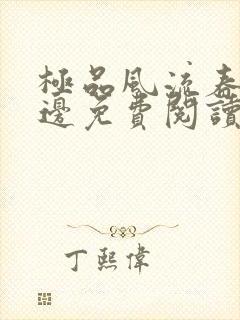 極品風流春
邊免費閱讀
丁熙偉